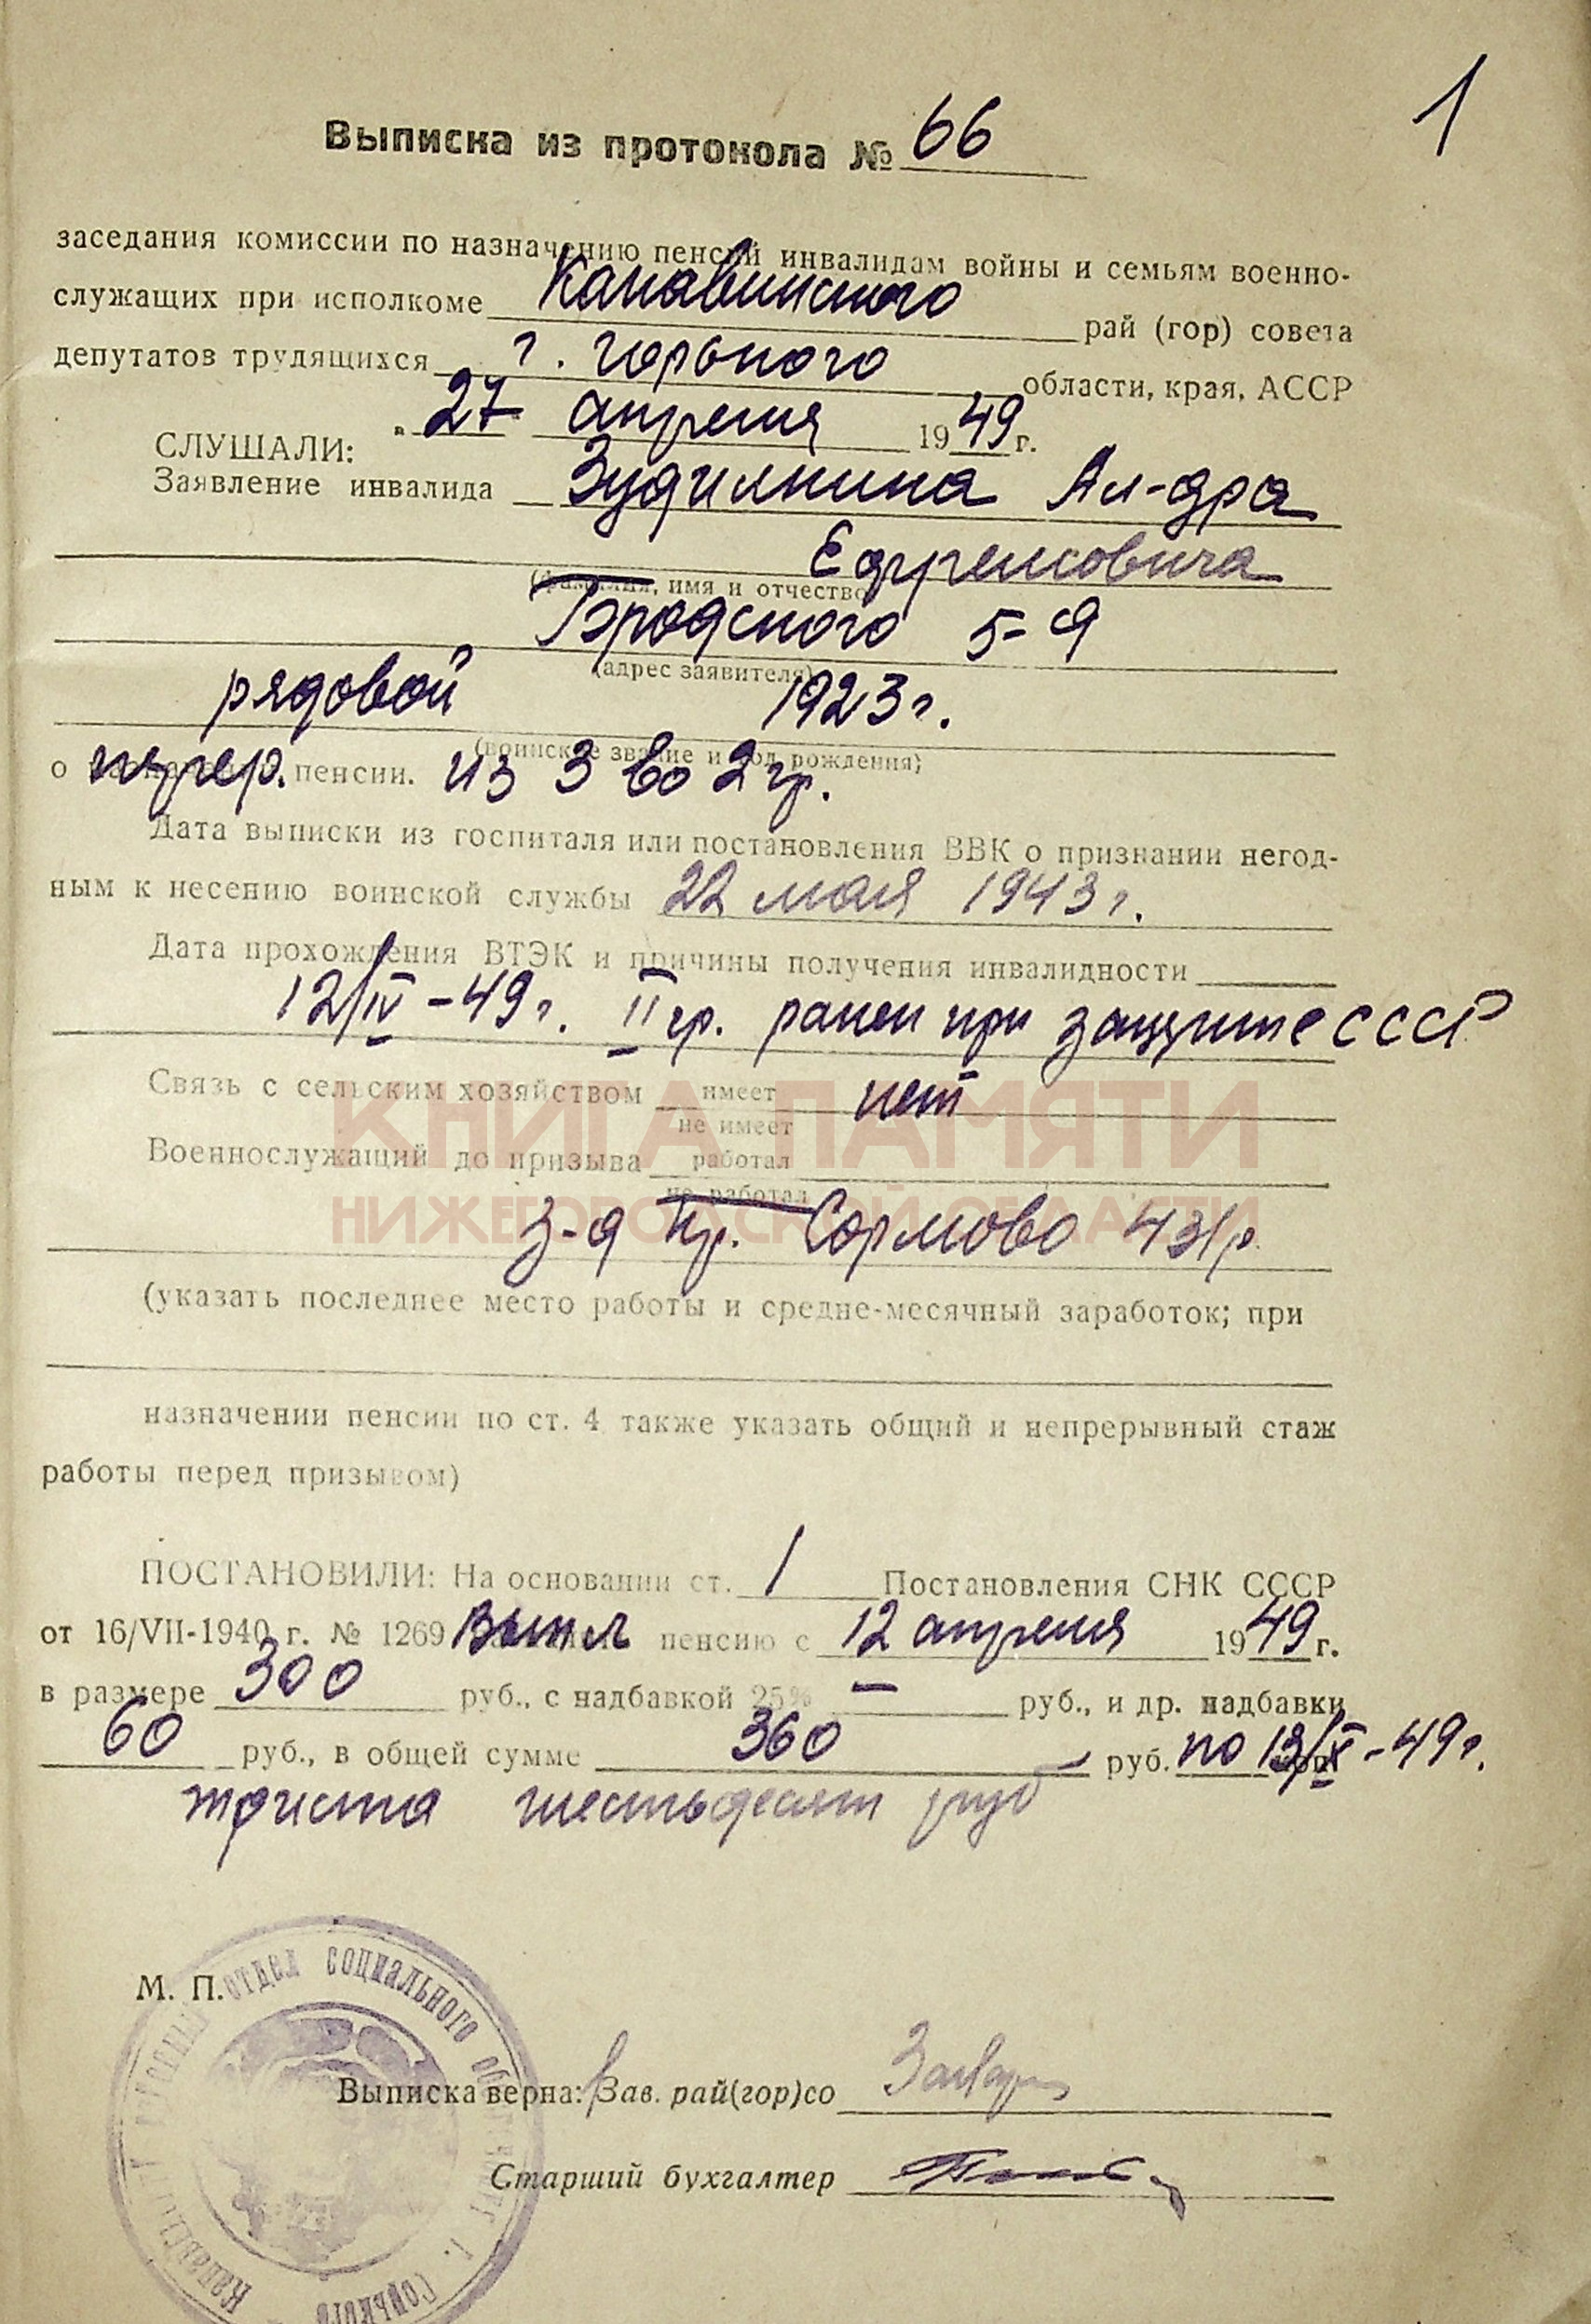 1
Выписка из протокола № 66
заседания комиссии по назначению пенсий инвалидам войны и семьям военно-
служащих при исполкоме Канавинского рай (гор) совета
депутатов трудящихся г. Горького области, края, АССР
„ 27 “ апреля 1949 г.
СЛУШАЛИ:
Заявление инвалида Зудилкина Ал-дра
Ефремовича
(фамилия, имя и отчество)
Бродского 5-9
(адрес заявителя)
рядовой 1923 г.
(воинское звание и год рождения)
о перер. пенсии. из 3 во 2 гр.
Дата выписки из госпиталя или постановления ВВК о признании негод-
ным к несению воинской службы 22 мая 1943 г.
Дата прохождения ВТЭК и причины получения инвалидности
12/IV-49 г. II гр. ранен при защите СССР
Связь с сельским хозяйством имеет нет
не имеет
КНИГА ПАМЯТИ
Военнослужащий до призыва работал
не работал
НИЖЕГОРОДСКОЙ ОБЛАСТИ
з-д Кр. Сормово 431 р.
(указать последнее место работы и средне-месячный заработок; при
назначении пенсии по ст. 4 также указать общий и непрерывный стаж
работы перед призывом)
ПОСТАНОВИЛИ: На основании ст. 1 Постановления СНК СССР
от 16/VII-1940 г. № 1269 пенсию с 12 апреля 1949 г.
в размере 300 руб., с надбавкой 25% — руб., и др. надбавки
60 руб., в общей сумме 360 руб. по 13/X-49 г.
триста шестьдесят руб
М. П.
отдел социального
г. Горького
Выписка верна: Зав. рай(гор)со
Старший бухгалтер